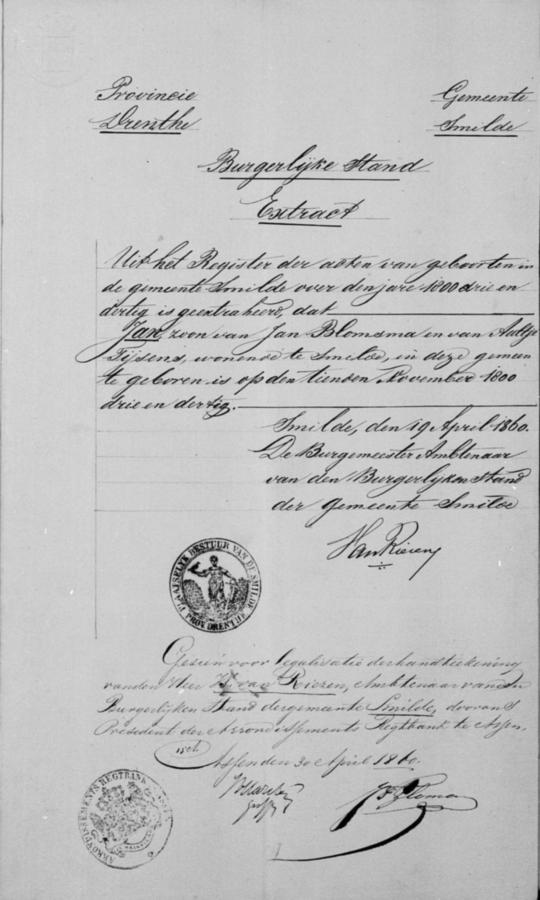 Provincie
Drenthe
Gemeente
Smilde
Burgerlijke Stand
Extract
Uit het Register der acten van geboorten in
de gemeente Smilde over den jare 1800 drie en
dertig is geextraheerd, dat
Jan, zoon van Jan Blomsma en van Aaltje
Tijsens, wonende te Smilde, in deze gemeen
te geboren is op den tienden November 1800
drie en dertig.
Smilde, den 19 April 1860.
De Burgemeester Ambtenaar
van den Burgerlijken Stand
der gemeente Smilde
PLAATSELYK BESTUUR VAN DE SMILDE
PROV. DRENTHE
Gezien voor legalisatie der handteekening
van den Heer van Riezen, Ambtenaar van den
Burgerlijken Stand der gemeente Smilde, door ons
President der Arrondissements Regtbank te Assen.
Assen den 30 April 1860.
ARRONDISSEMENTS REGTBANK